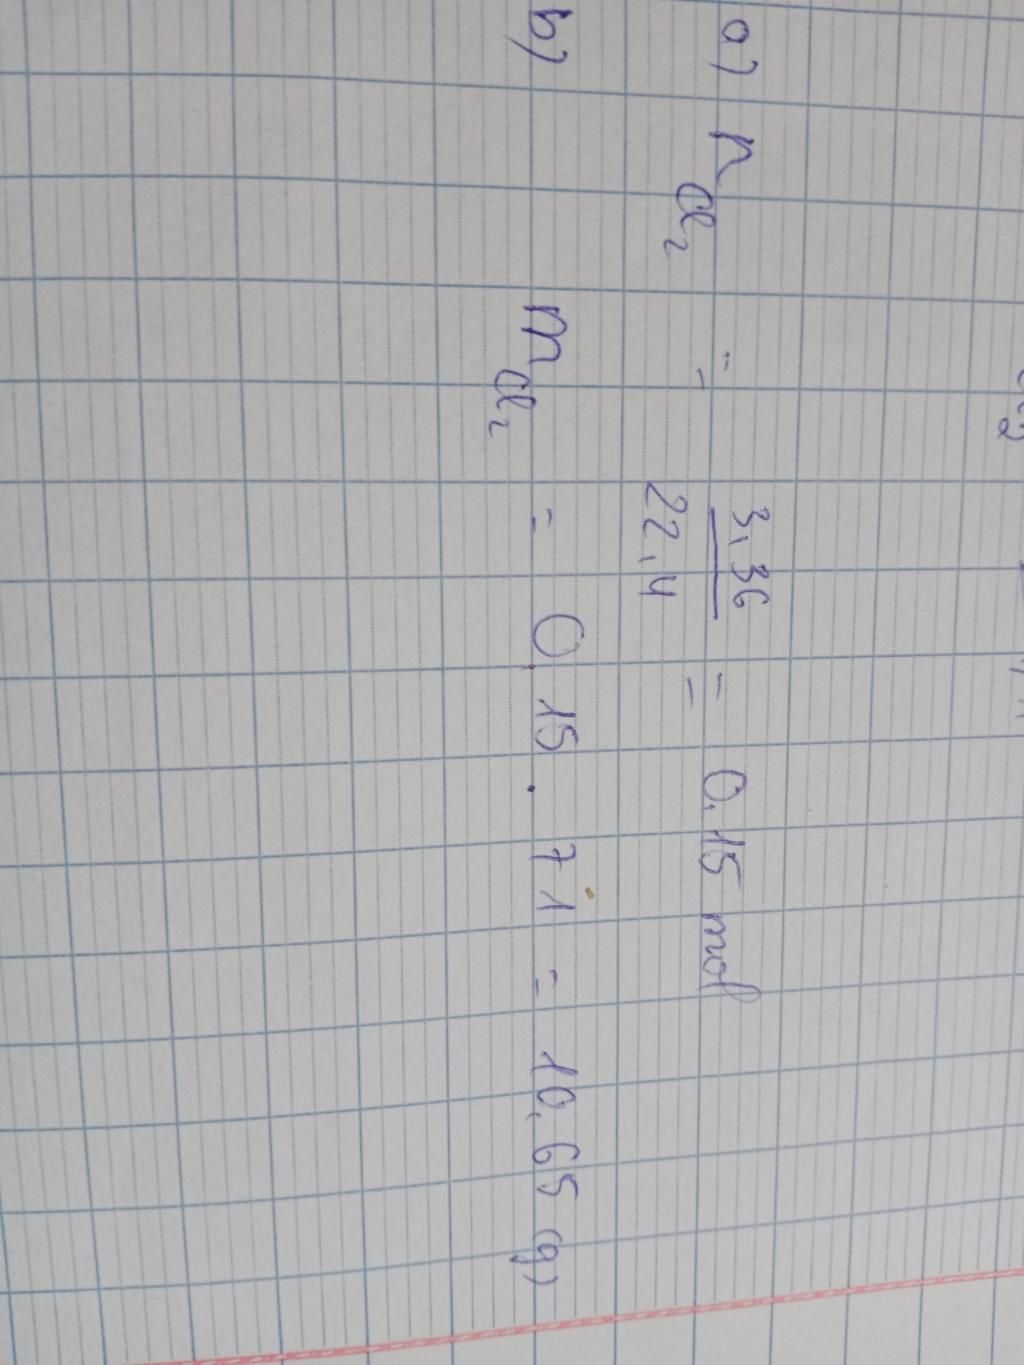 a) n Cl₂ = 3,36 / 22,4 = 0,15 mol
b) m Cl₂ = 0,15 . 71 = 10,65 (g)